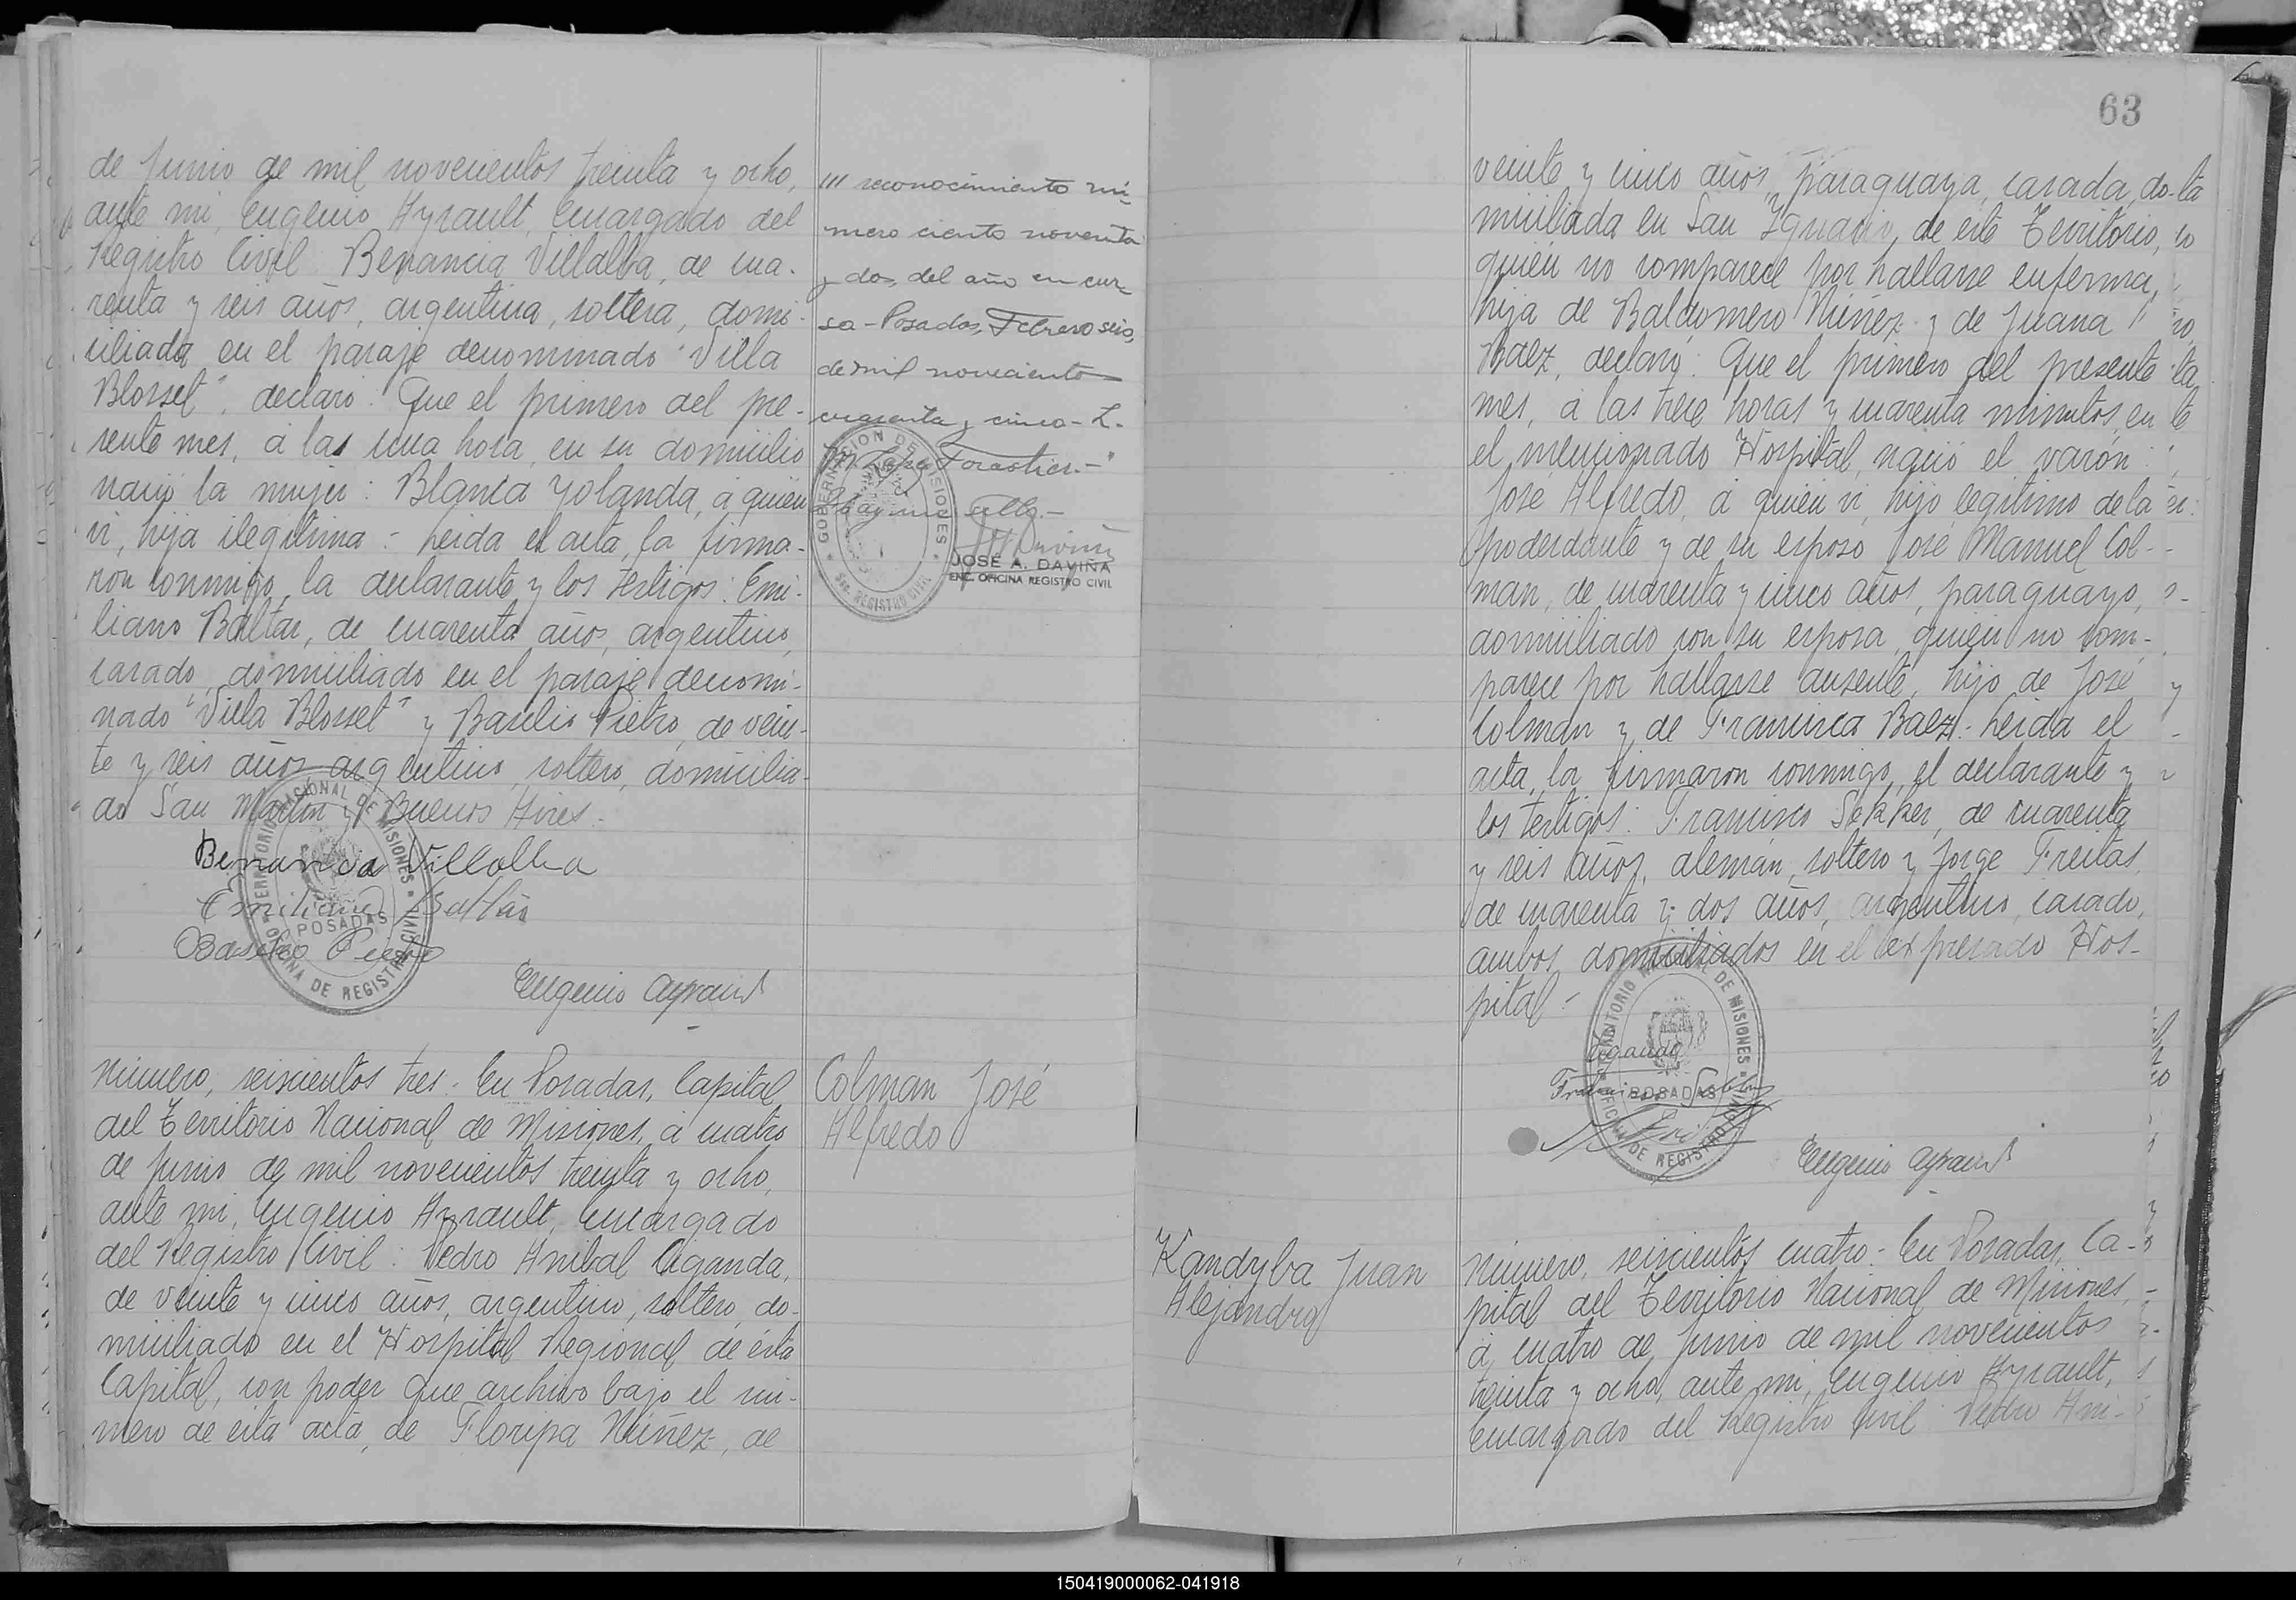 de Junio de mil novecientos treinta y ocho,
ante mi, Eugenio Ayrault, Encargado del
Registro Civil: Benancia Villalba, de cua-
renta y seis años, argentina, soltera, domi-
ciliada en el paraje denominado "Villa
Blosset", declaró: Que el primero del pre-
sente mes, á las una hora, en su domicilio
nació la mujer: Blanca Yolanda, á quién
ví, hija ilegítima.- Leída el acta, la firma-
ron conmigo, la declarante y los testigos: Emi-
liano Baltar, de cuarenta años, argentino,
casado, domiciliado en el paraje denomi-
nado "Villa Blosset" y Basilio Pietro, de vein-
te y seis años, argentino, soltero, domicilia-
do San Martín y Buenos Aires.-
Benancia Villalba
Emiliano Baltar
Basilio
Eugenio Ayrault
TERRITORIO NACIONAL DE MISIONES
POSADAS
OFICINA DE REGISTRO CIVIL
/// reconocimiento nú-
mero ciento noventa
y dos, del año en cur-
so - Posadas, Febrero seis,
de mil novecientos
cuarenta y cinco - L.
Forastier.-"
sello.-
GOBERNACION DE MISIONES
Sec. REGISTRO CIVIL
JOSÉ A. DAVIÑA
ENC. OFICINA REGISTRO CIVIL
Número, seiscientos tres.- En Posadas, Capital
del Territorio Nacional de Misiones, á cuatro
de Junio de mil novecientos treinta y ocho,
ante mi, Eugenio Ayrault, Encargado
del Registro Civil: Pedro Anibal Oganda,
de veinte y cinco años, argentino, soltero, do-
miciliado en el Hospital Regional de ésta
Capital, con poder que archivo bajo el nú-
mero de esta acta, de Floripa Núñez, de
Colman José
Alfredo
63
veinte y cinco años, paraguaya, casada, do-
miciliada en San Ignacio, de este Territorio,
quién no comparece por hallarse enferma,
hija de Baldomero Núñez y de Juana
Baez, declaró: Que el primero del presente
mes, á las trece horas y cuarenta minutos, en
el mencionado Hospital, nació el varón:
José Alfredo, á quién ví, hijo legítimo de la
poderdante y de su esposo José Manuel Col-
man, de cuarenta y cinco años, paraguayo,
domiciliado con su esposa, quién no com-
parece por hallarse ausente, hijo de José
Colman y de Francisca Baez.- Leída el
acta, la firmaron conmigo, el declarante y
los testigos: Francisco Sekker, de cuarenta
y seis años, alemán, soltero y Jorge Freitas,
de cuarenta y dos años, argentino, casado,
ambos domiciliados en el expresado Hos-
pital.-
Oganda
TERRITORIO NACIONAL DE MISIONES
POSADAS
OFICINA DE REGISTRO CIVIL
Eugenio Ayrault
Kandyba Juan
Alejandro
Número, seiscientos cuatro.- En Posadas, Ca-
pital del Territorio Nacional de Misiones,
á cuatro de Junio de mil novecientos
treinta y ocho, ante mi, Eugenio Ayrault,
Encargado del Registro Civil: Pedro Aní-
150419000062-041918